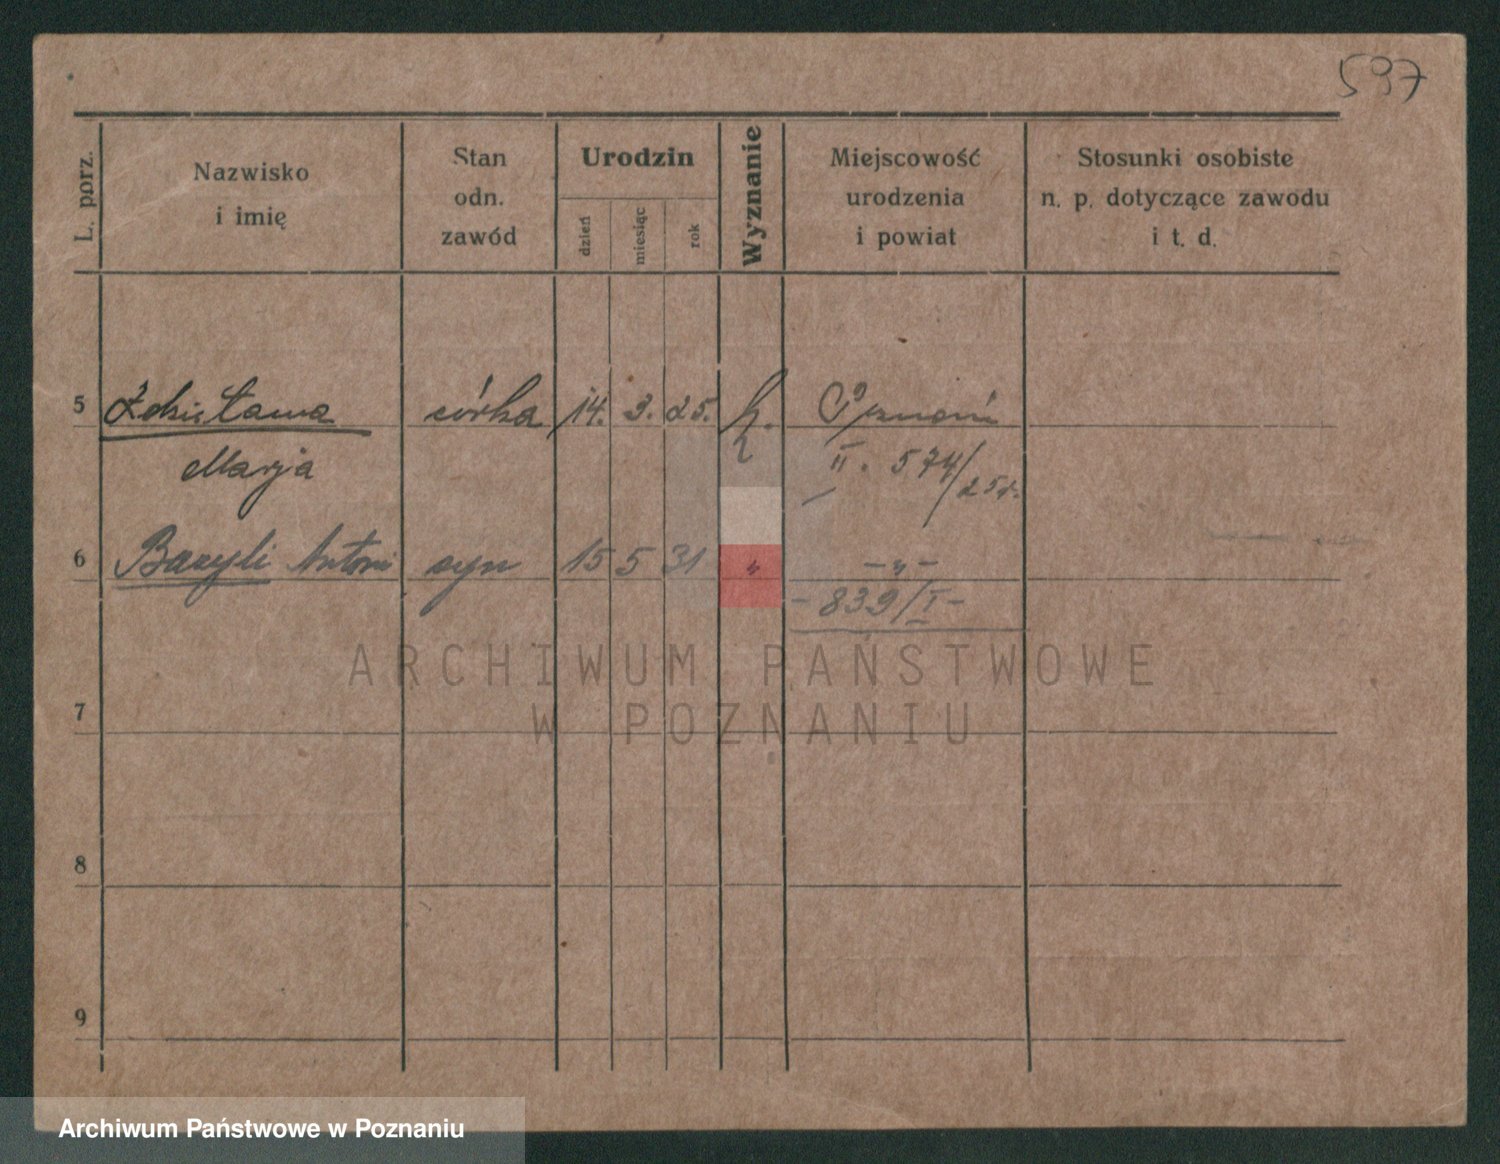 597
L. porz.
Nazwisko
i imię
Stan
odn.
zawód
Urodzin
dzień
miesiąc
rok
Wyznanie
Miejscowość
urodzenia
i powiat
Stosunki osobiste
n. p. dotyczące zawodu
i t. d.
5 Zdzisława córka 14. 3. 25. k. Poznań
Marja II. 574/25r.
6 Bazyli Antoni syn 15 5 31 „ -„-
-839/I-
ARCHIWUM PAŃSTWOWE
7
W POZNANIU
8
9
Archiwum Państwowe w Poznaniu